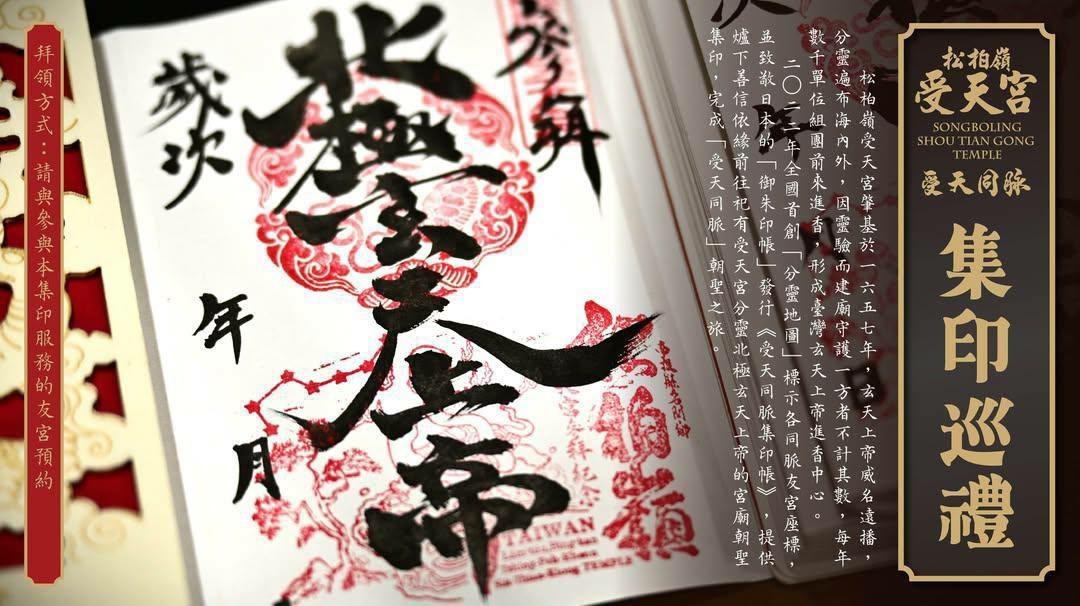 松柏嶺
受天宮
SONGBOLING
SHOU TIAN GONG
TEMPLE
受天同脉
集印巡禮
松柏嶺受天宮肇基於一六五七年，玄天上帝威名遠播，
分靈遍布海內外，因靈驗而建廟守護一方者不計其數，每年
數千單位組團前來進香，形成臺灣玄天上帝進香中心。
二〇二二年全國首創「分靈地圖」標示各同脈友宮座標，
並致敬日本的「御朱印帳」發行《受天同脈集印帳》，提供
爐下善信依緣前往祀有受天宮分靈北極玄天上帝的宮廟朝聖
集印，完成「受天同脈」朝聖之旅。
參拜
北極玄天上帝
歲次
年
月
松柏嶺
TAIWAN
TEMPLE
拜領方式：請與參與本集印服務的友宮預約